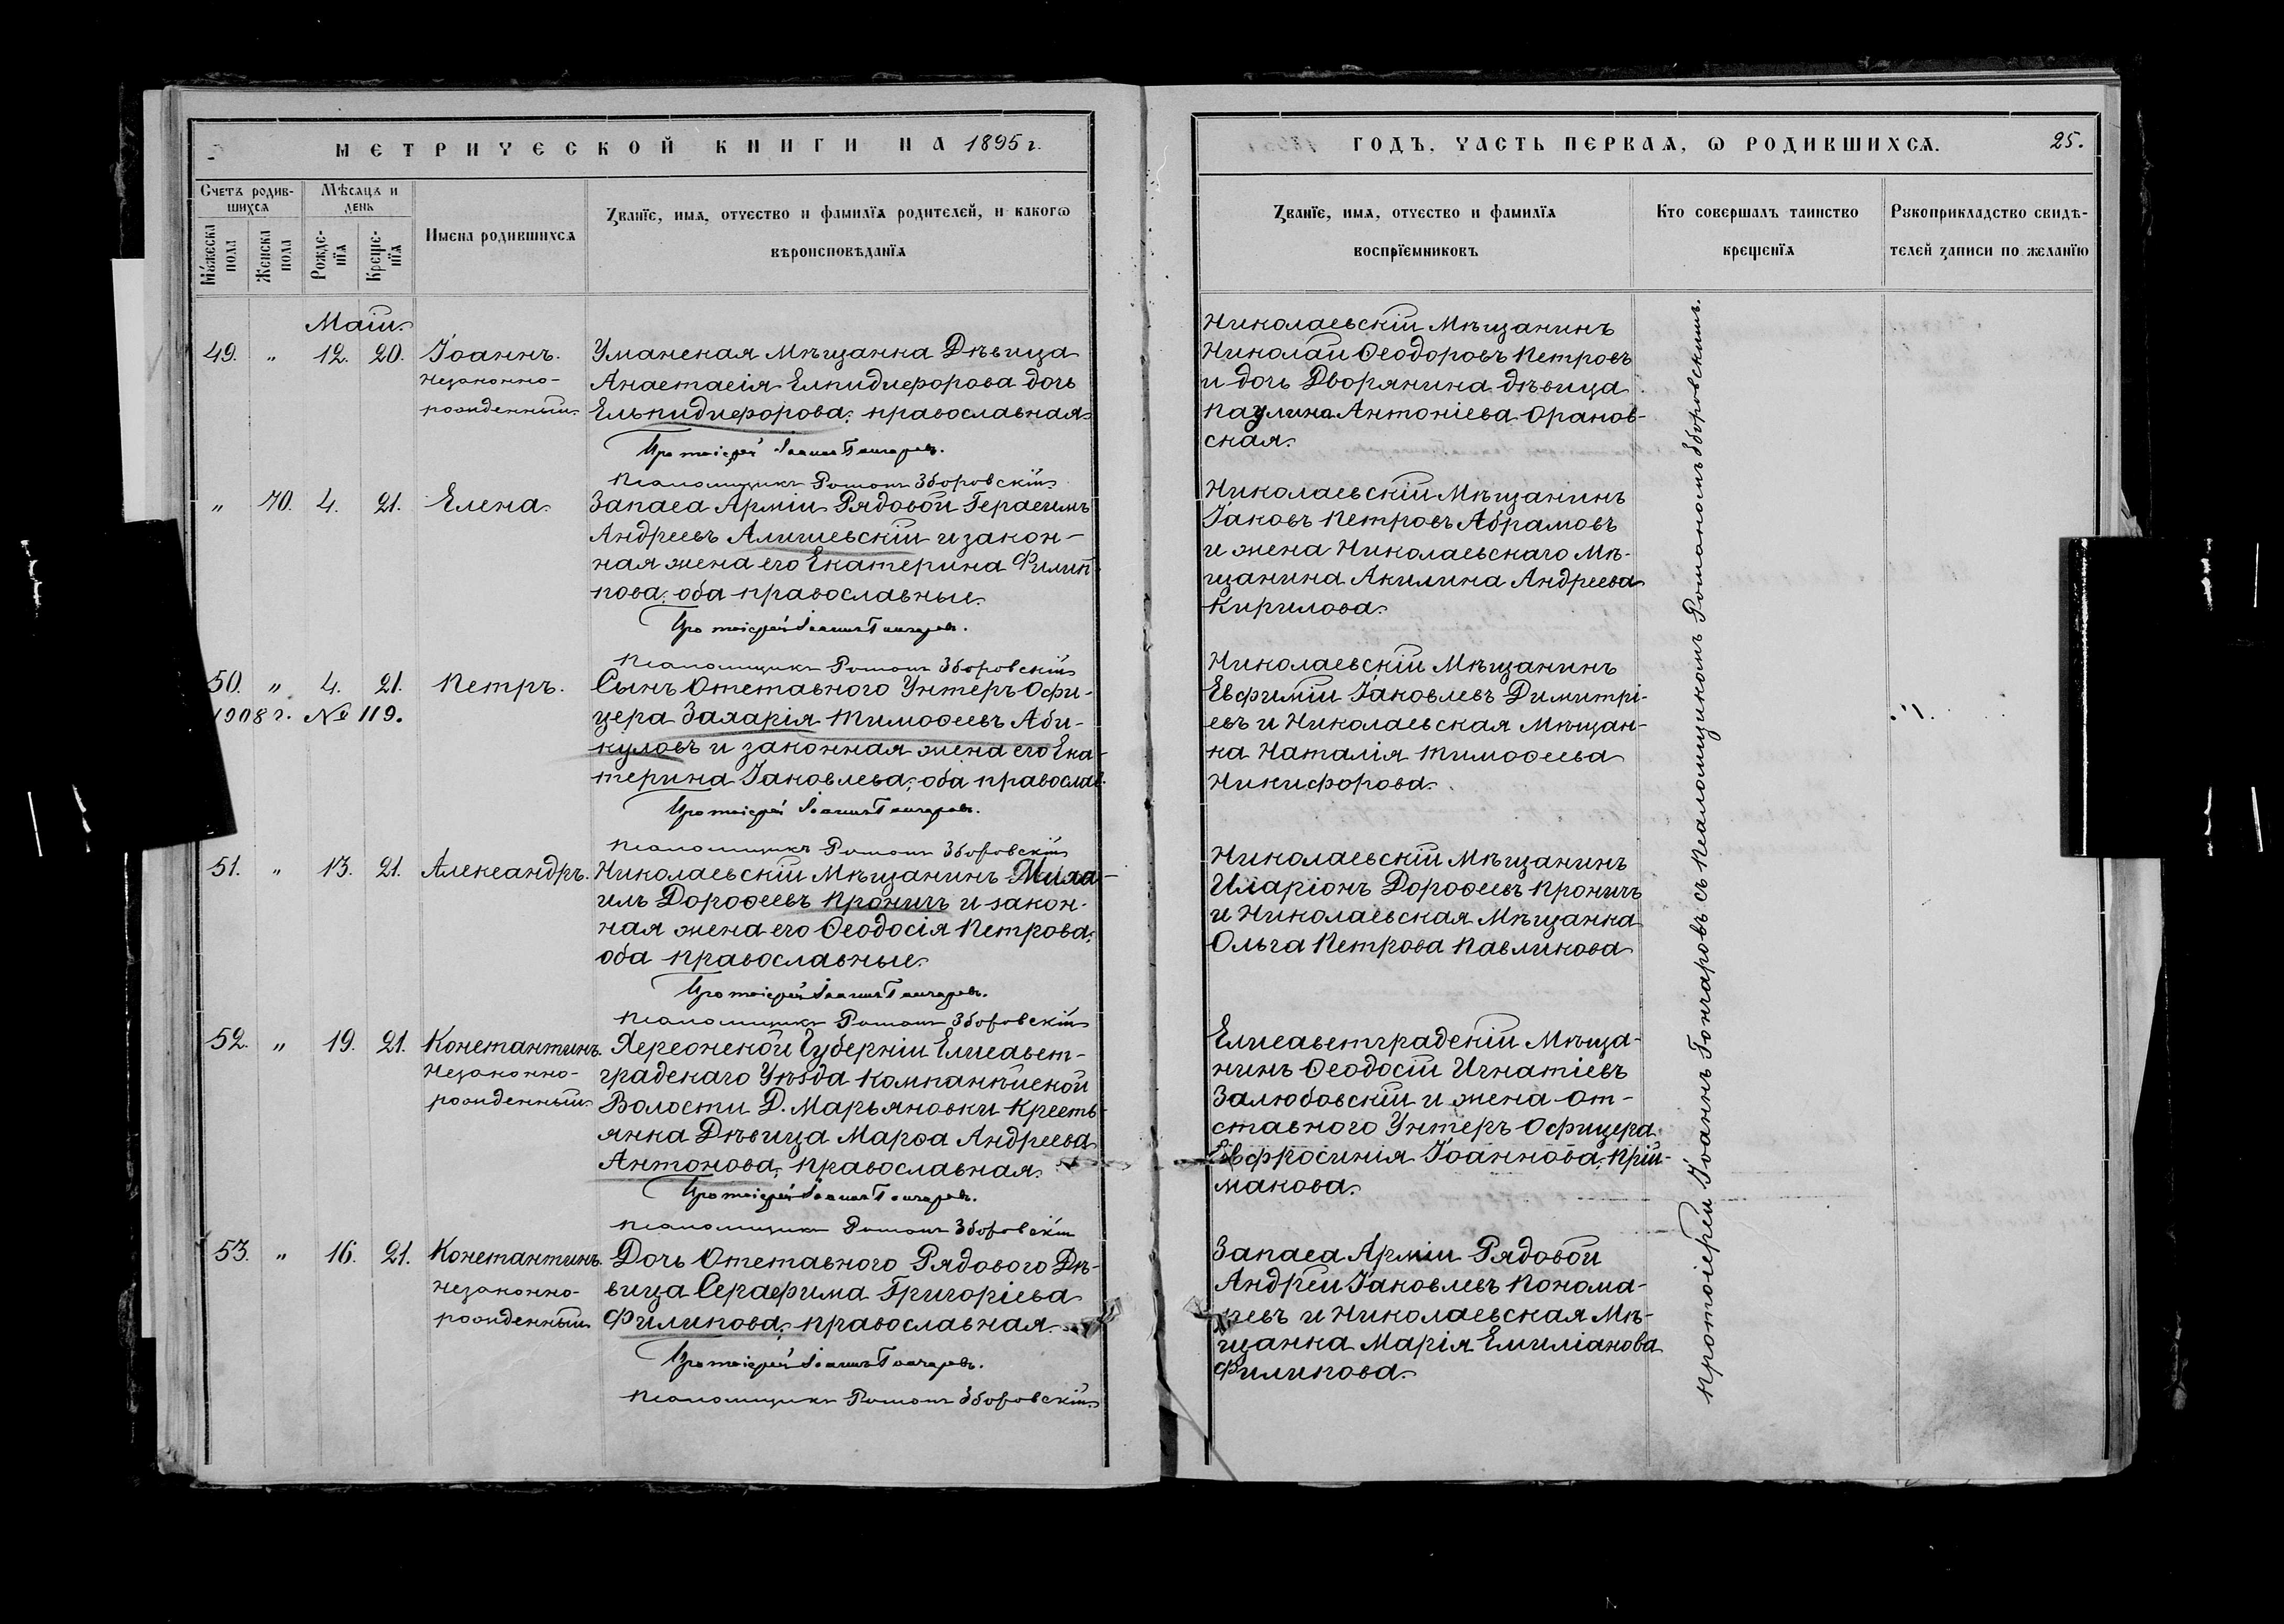 МЕТРИЧЕСКОЙ КНИГИ НА 1895 г.
Счетъ родив-
шихся
Мѣсяцъ и
день
Имена родившихся
Званїе, имя, отчество и фамилїя родителей, и какогѡ
вѣроисповѣданїя
Мꙋжеска
пола
Женска
пола
Рожде-
нїя
Креще-
нїя
Маій
49. " 12. 20. Іоаннъ. Уманская Мѣщанка Дѣвица
незаконно- Анастасія Елпидифорова дочь
рожденный. Ельпидифорова, православная.
Протоіерей Іоаннъ Гончаровъ.
Псаломщикъ Романъ Зборовскій
" 70. 4. 21. Елена. Запаса Арміи Рядовой Герасимъ
Андреевъ Алишевскій и закон-
ная жена его Екатерина Филип-
пова, оба православные.
Протоіерей Іоаннъ Гончаровъ.
Псаломщикъ Романъ Зборовскій
50. " 4. 21. Петръ. Сынъ Отставного Унтеръ Офи-
1908 г. № 119. цера Захарія Тимофеевъ Аби-
куловъ и законная жена его Ека-
терина Іаковлева, оба православ.
Протоіерей Іоаннъ Гончаровъ.
Псаломщикъ Романъ Зборовскій
51. " 13. 21. Александръ. Николаевскій Мѣщанинъ Миха-
илъ Дороѳеевъ Пронинъ и закон-
ная жена его Ѳеодосія Петрова,
оба православные.
Протоіерей Іоаннъ Гончаровъ.
Псаломщикъ Романъ Зборовскій
52. " 19. 21. Константинъ. Херсонской Губерніи Елисавет-
Незаконно- градскаго Уѣзда Компанѣиской
рожденный. Волости Д. Марьяновки Кресть-
янка Дѣвица Марѳа Андреева
Антонова, православная.
Протоіерей Іоаннъ Гончаровъ.
Псаломщикъ Романъ Зборовскій
53. " 16. 21. Константинъ. Дочь Отставного Рядового Дѣ-
незаконно- вица Серафима Григоріева
рожденный Филипова, православная.
Протоіерей Іоаннъ Гончаровъ.
Псаломщикъ Романъ Зборовскій
ГОДЪ, ЧАСТЬ ПЕРВАЯ, Ѡ РОДИВШИХСЯ. 25.
Званїе, имя, отчество и фамилїя
воспрїемниковъ
Кто совершалъ таинство
крещенїя
Рꙋкоприкладство свидѣ-
телей записи по желанїю
Николаевскій Мѣщанинъ
Николай Ѳеодоровъ Петровъ
и дочь Дворянина дѣвица
Паулина Антоніева Оранов-
ская.
Николаевскій Мѣщанинъ
Іаковъ Петровъ Абрамовъ
и жена Николаевскаго Мѣ-
щанина Акилина Андреева
Кирилова.
Николаевскій Мѣщанинъ
Евфимій Іаковлевъ Димитрі-
евъ и Николаевская Мѣщан-
ка Наталія Тимоѳеева
Никифорова.
Николаевскій Мѣщанинъ
Иларіонъ Дороѳеевъ Пронинъ
и Николаевская Мѣщанка
Ольга Петрова Павликова
Елисаветградскій Мѣща-
нинъ Ѳеодосій Игнатіевъ
Залюбовскій и жена от-
ставного Унтеръ Офицера
Евфросинія Іоаннова, Прій-
макова.
Запаса Арміи Рядовой
Андрей Іаковлевъ Понома-
ревъ и Николаевская Мѣ-
щанка Марія Емиліанова
Филипова.
Протоіерей Іоаннъ Гончаровъ съ Псаломщикомъ Романомъ Зборовскимъ.